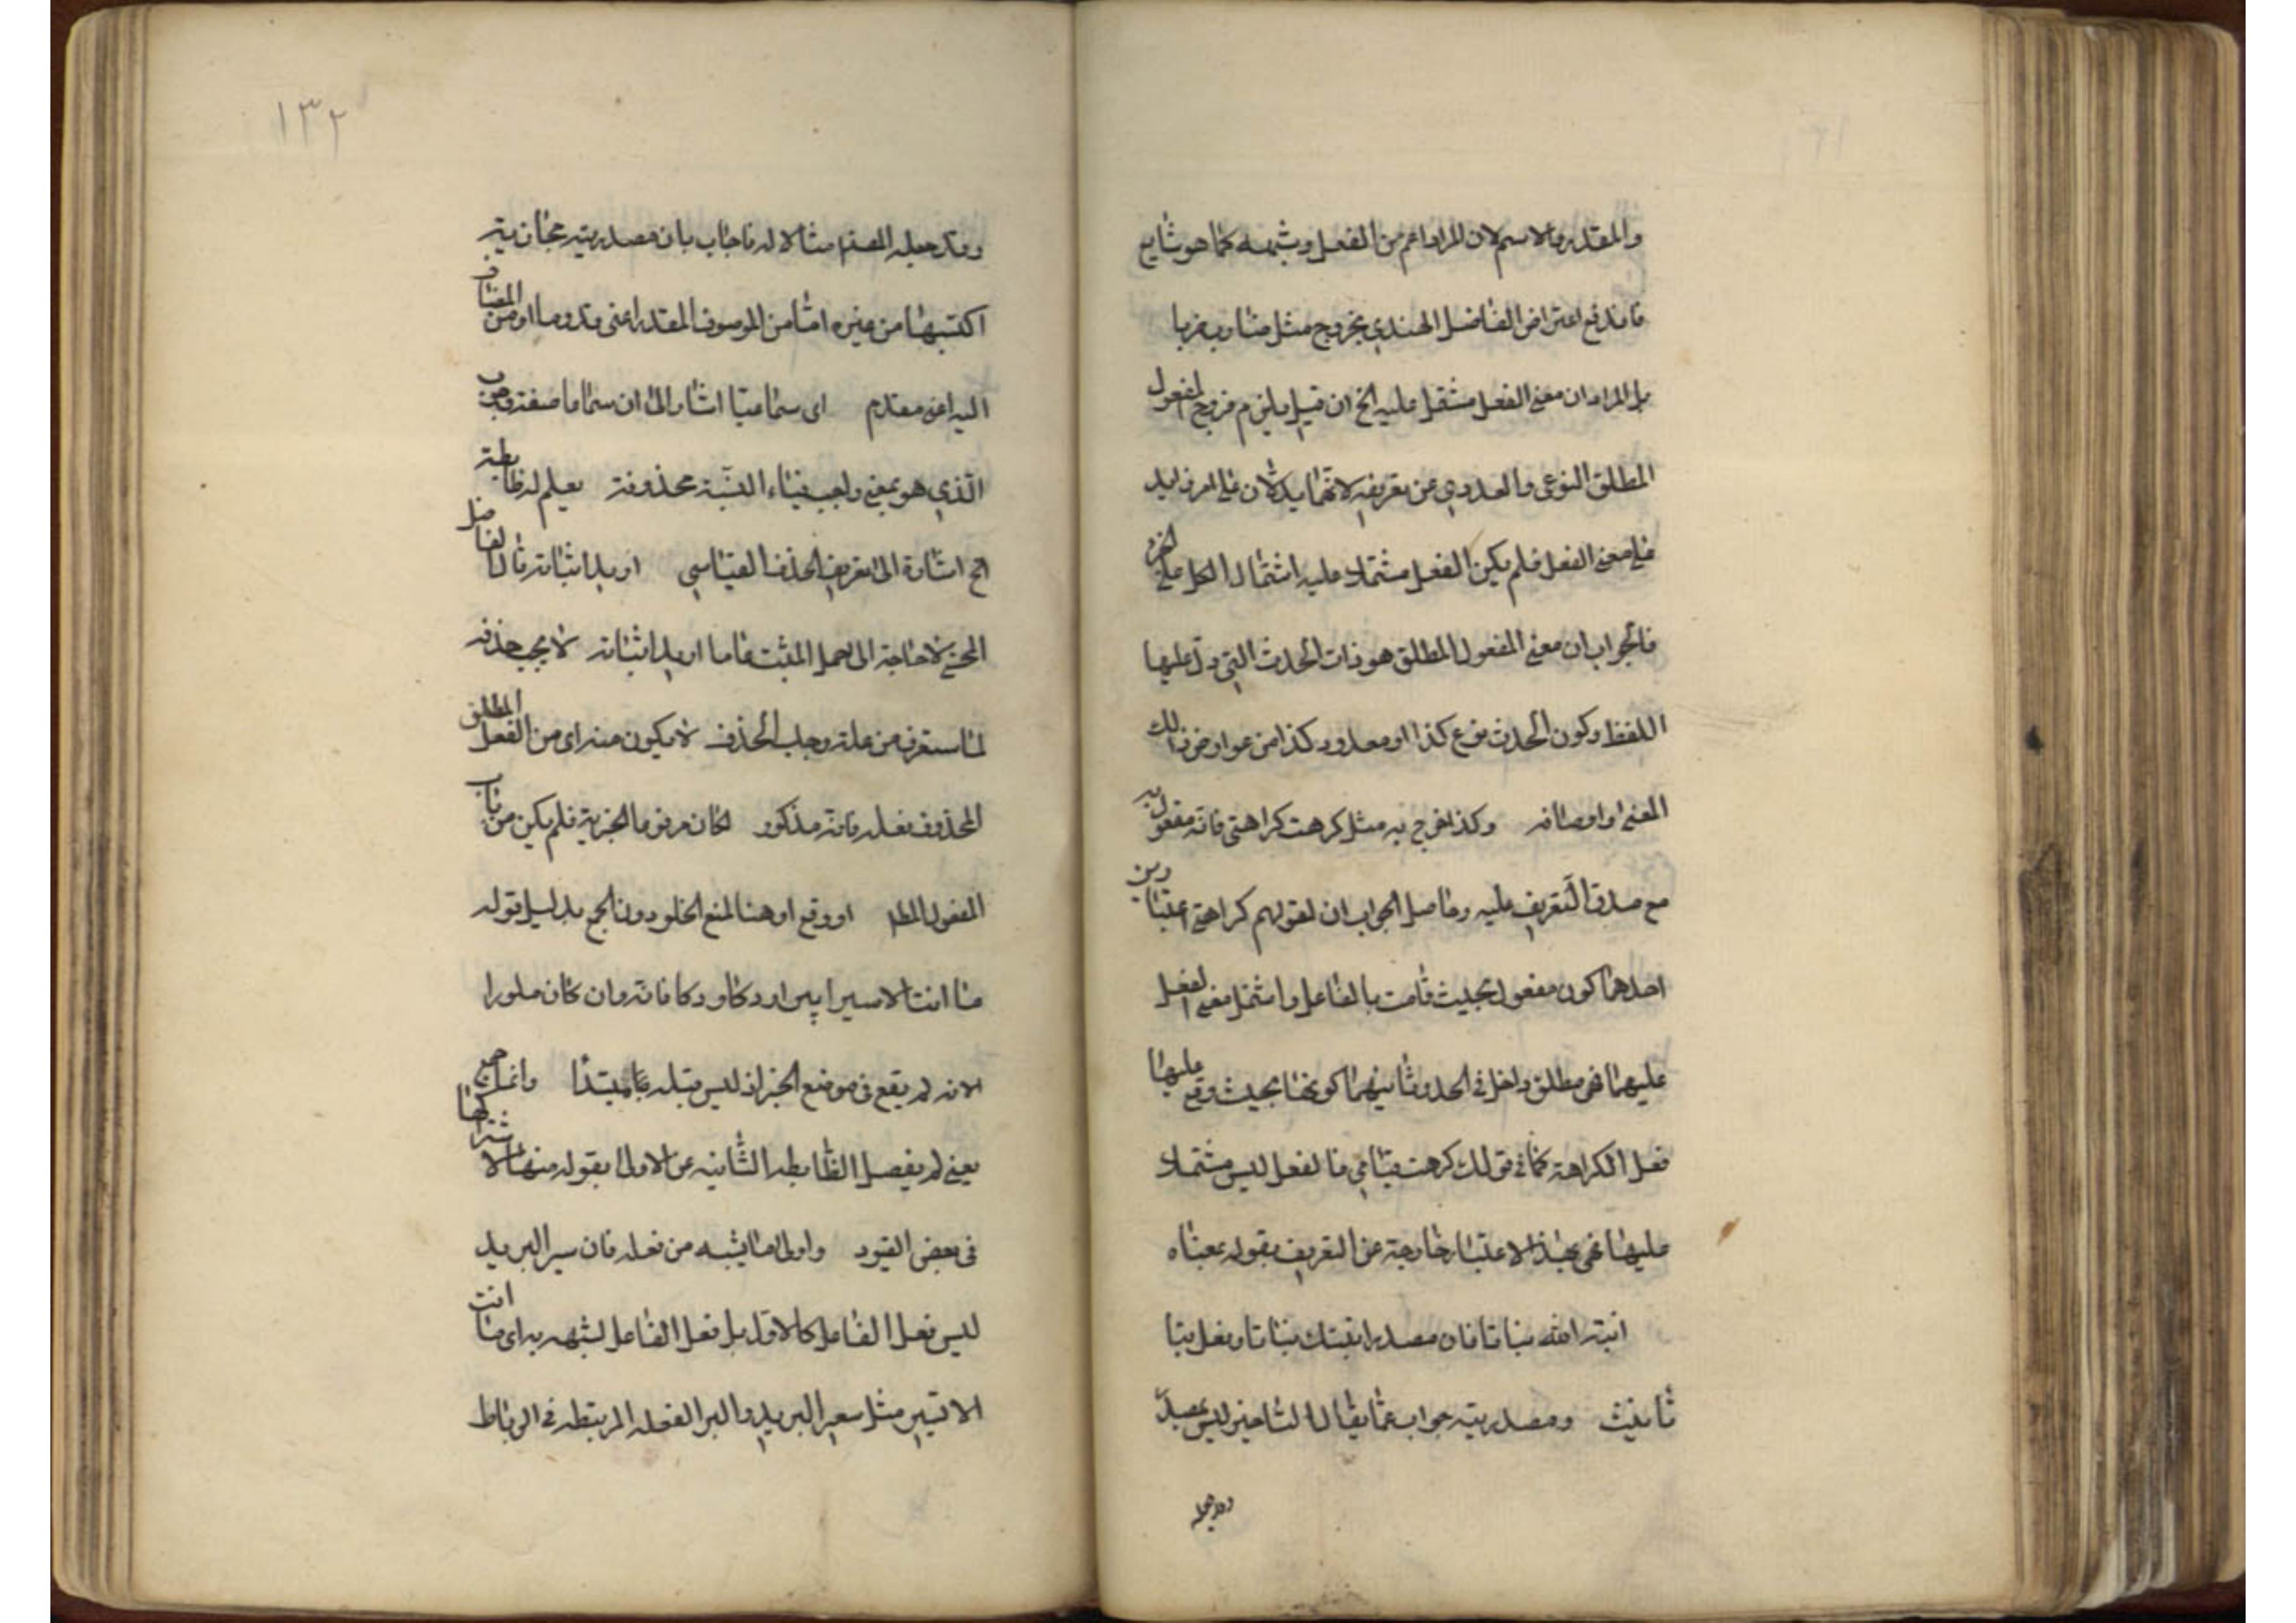 والمقدر والاسم لان المراد اعم من الفعل وشبهه كما هو شايع
فاندفع اعتراض الفاضل الهندي بخروج مثل ضارب ضربا
بل المراد ان معنى الفعل مشتمل عليه الخ ان قيل يلزم خروج المفعول
المطلق النوعي والعددي عن تعريفه لانهما يدلان على امر زايد
على معنى الفعل فلم يكن الفعل مشتملا عليه اشتمال الكل على الجزء
فالجواب ان معنى المفعول المطلق هو ذات الحدث التي دل عليها
اللفظ وكون الحدث نوع كذا او معدود كذا من عوارض ذلك
المعنى واوصافه وكذا خرج به مثل كرهت كراهتي فانه مفعول به
مع صدق التعريف عليه وحاصل الجواب ان لقولهم كراهتي اعتبارين
احدهما كون مفعول بحيث قامت بالفاعل واشتمل معنى الفعل
عليها فهي مطلق داخل في الحد وثانيهما كونها بحيث وقع عليها
فعل الكراهة كما في قولك كرهت قيامي فالفعل ليس مشتملا
عليها فهي بهذا الاعتبار خارجة عن التعريف بقوله بمعناه
انبته الله نباتا فان مصدر انبتك نباتا وفعل نباتا
ثانيث ومصدريته جواب عما يقال الشاحين ليس بمصدر
وقد جعله
١٣٢
وقد جعله المصنف مثالا له فاجاب بان مصدريته مجازية
اكتسبها من غيره اما من الموصوف المقدر اعني قدوما او من المضاف
اليه اعني مقدم اى سماعيا اشار الى ان سماعا صفة وجوب
الذي هو بمعنى واجب فياء النسبة محذوفة يعلم له ضابطة
الخ اشارة الى تعريف الحذف القياسي اريد اثباته قال الفاضل
المحشي لا حاجة الى حمل المثبت على ما اريد اثباته لا يجب حذفه
لما ستعرف من علة وجوب الحذف لا يكون منه اى من الفعل المطلق
المحذوف فعله فانه مذكور لكان مرفوعا بالخبرية فلم يكن من باب
المفعول المطلق او وقع او هنا لمنع الخلو دون الجمع بدليل قوله
ما انت الا سيرا فانه وان كان مكررا
الا انه لم يقع في موضع الخبر اذ ليس قبله مبتدا وانما جمع
يعني لم يفصل الضابطة الثانية عن الاولى بقوله منها لاشتراكهما
في بعض القيود واولى ما يشبه من فعله فان سير البريد
ليس فعل الفاعل كالاول بل فعل الفاعل يشبهه به اى ما انت
الا تسير مثل سير البريد والبريد البغلة المرتبطة في الرباط